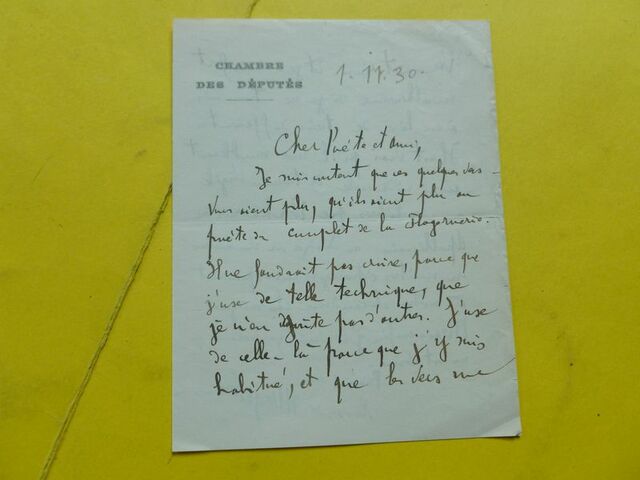 CHAMBRE
DES DÉPUTÉS
1.11.30.
Cher Poéte et ami,
Je suis content que ces quelques vers
vous aient plu, qu'ils aient plu au
poéte du complet de la Flagornerie.
Il ne faudrait pas croire, parce que
j'use de telle technique, que
je n'en goûte pas d'autres. J'use
de celle-là parce que j'y suis
habitué, et que les vers me